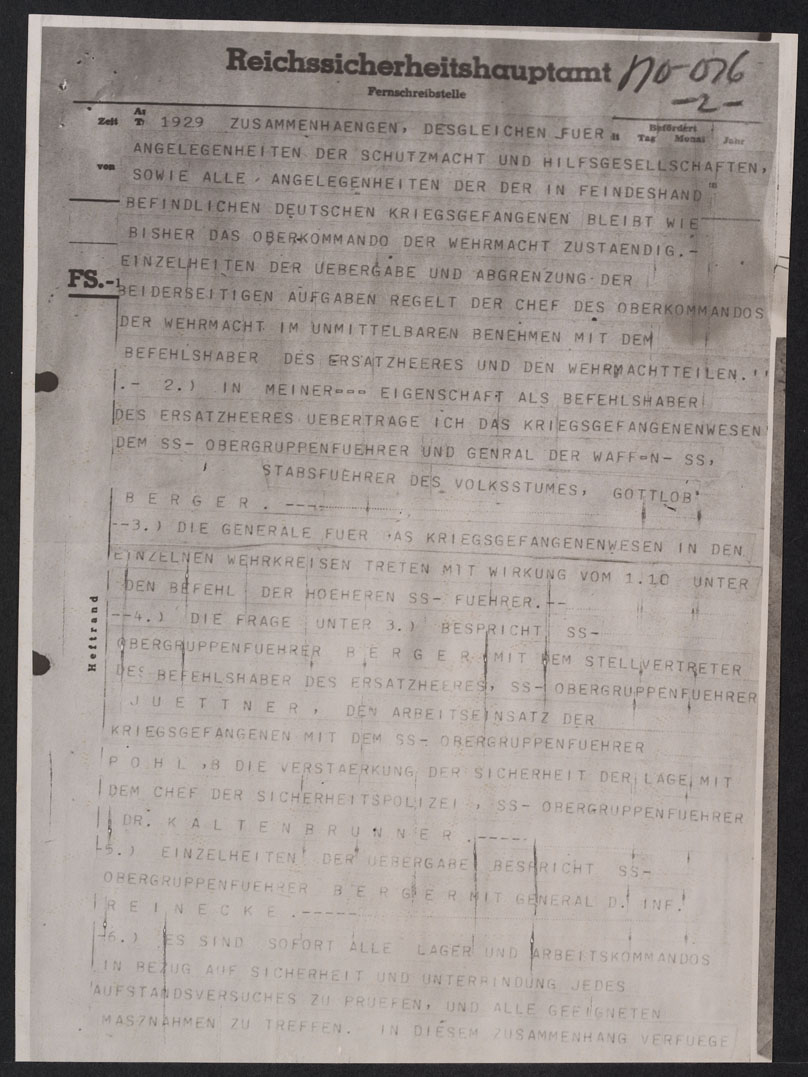 Reichssicherheitshauptamt NO-026
Fernschreibstelle
-2-
Zeit
Befördert
Tag Monat Jahr
von
FS.-
Heftrand
1929 ZUSAMMENHAENGEN, DESGLEICHEN FUER
ANGELEGENHEITEN DER SCHUTZMACHT UND HILFSGESELLSCHAFTEN,
SOWIE ALLE ANGELEGENHEITEN DER DER IN FEINDESHAND
BEFINDLICHEN DEUTSCHEN KRIEGSGEFANGENEN BLEIBT WIE
BISHER DAS OBERKOMMANDO DER WEHRMACHT ZUSTAENDIG.-
EINZELHEITEN DER UEBERGABE UND ABGRENZUNG DER
BEIDERSEITIGEN AUFGABEN REGELT DER CHEF DES OBERKOMMANDOS
DER WEHRMACHT IM UNMITTELBAREN BENEHMEN MIT DEM
BEFEHLSHABER DES ERSATZHEERES UND DEN WEHRMACHTTEILEN.''
.- 2.) IN MEINER=== EIGENSCHAFT ALS BEFEHLSHABER
DES ERSATZHEERES UEBERTRAGE ICH DAS KRIEGSGEFANGENENWESEN
DEM SS- OBERGRUPPENFUEHRER UND GENRAL DER WAFF=N- SS,
STABSFUEHRER DES VOLKSSTUMES, GOTTLOB
B E R G E R . -----
--3.) DIE GENERALE FUER AS KRIEGSGEFANGENENWESEN IN DEN
EINZELNEN WEHRKREISEN TRETEN MIT WIRKUNG VOM 1.10 UNTER
DEN BEFEHL DER HOEHEREN SS- FUEHRER.--
--4.) DIE FRAGE UNTER 3.) BESPRICHT SS-
OBERGRUPPENFUEHRER B E R G E R MIT DEM STELLVERTRETER
DES BEFEHLSHABER DES ERSATZHEERES, SS- OBERGRUPPENFUEHRER
J U E T T N E R , DEN ARBEITSEINSATZ DER
KRIEGSGEFANGENEN MIT DEM SS- OBERGRUPPENFUEHRER
P O H L ,B DIE VERSTAERKUNG DER SICHERHEIT DER LAGE MIT
DEM CHEF DER SICHERHEITSPOLIZEI , SS- OBERGRUPPENFUEHRER
DR. K A L T E N B R U N N E R .-----
-5.) EINZELHEITEN DER UEBERGABE BESPRICHT SS-
OBERGRUPPENFUEHRER B E R G E R MIT GENERAL D. INF.
R E I N E C K E .-----
-6.) ES SIND SOFORT ALLE LAGER UND ARBEITSKOMMANDOS
IN BEZUG AUF SICHERHEIT UND UNTERBINDUNG JEDES
AUFSTANDSVERSUCHES ZU PRUEFEN, UND ALLE GEEIGNETEN
MASZNAHMEN ZU TREFFEN. IN DIESEM ZUSAMMENHANG VERFUEGE